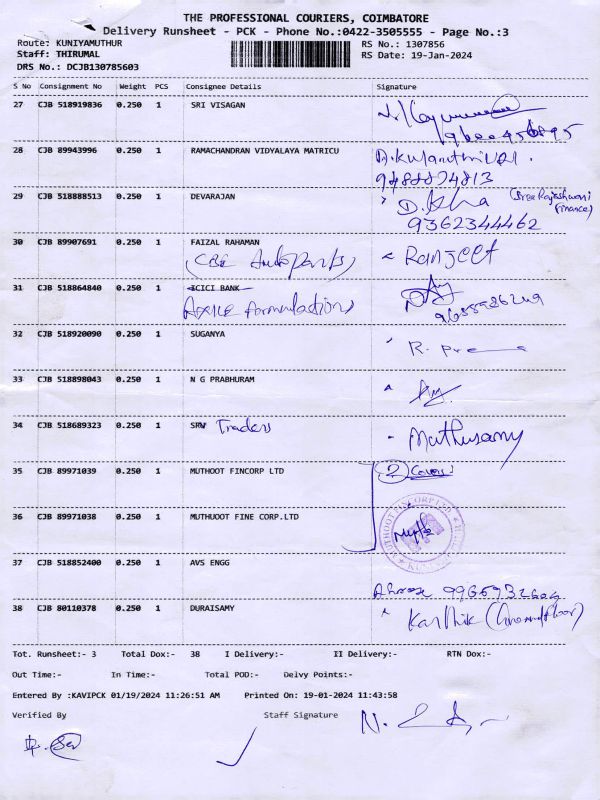 THE PROFESSIONAL COURIERS, COIMBATORE
Delivery Runsheet - PCK - Phone No.:0422-3505555 - Page No.:3
Route: KUNIYAMUTHUR RS No.: 1307856
Staff: THIRUMAL RS Date: 19-Jan-2024
DRS No.: DCJB130785603
S No Consignment No Weight PCS Consignee Details Signature
27 CJB 518919836 0.250 1 SRI VISAGAN
28 CJB 89943996 0.250 1 RAMACHANDRAN VIDYALAYA MATRICU
29 CJB 518888513 0.250 1 DEVARAJAN D.Usha (Sree Rajeshwari Finance)
9362344462
30 CJB 89907691 0.250 1 FAIZAL RAHAMAN Ranjeet
(CBE Autoparts)
31 CJB 518864840 0.250 1 ICICI BANK
Axile formulations
32 CJB 518920090 0.250 1 SUGANYA
33 CJB 518898043 0.250 1 N G PRABHURAM
34 CJB 518689323 0.250 1 SRV Traders Muthusamy
35 CJB 89971039 0.250 1 MUTHOOT FINCORP LTD 2 Covers
36 CJB 89971038 0.250 1 MUTHUOOT FINE CORP.LTD
MUTHOOT FINCORP LTD
37 CJB 518852400 0.250 1 AVS ENGG
38 CJB 80110378 0.250 1 DURAISAMY Karthik (Ground floor)
Tot. Runsheet:- 3 Total Dox:- 38 I Delivery:- II Delivery:- RTN Dox:-
Out Time:- In Time:- Total POD:- Delvy Points:-
Entered By :KAVIPCK 01/19/2024 11:26:51 AM Printed On: 19-01-2024 11:43:58
Verified By Staff Signature